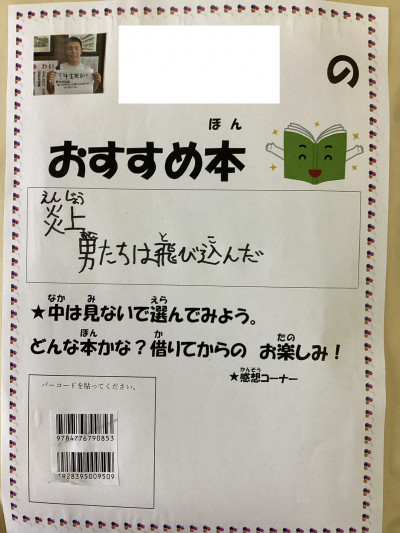 の
ほん
おすすめ本
えんじょう
炎上
男たちは飛び込んだ
★中は見ないで選んでみよう。
どんな本かな？借りてからの お楽しみ！
★感想コーナー
バーコードを貼ってください。
9784776790853
1928395009509